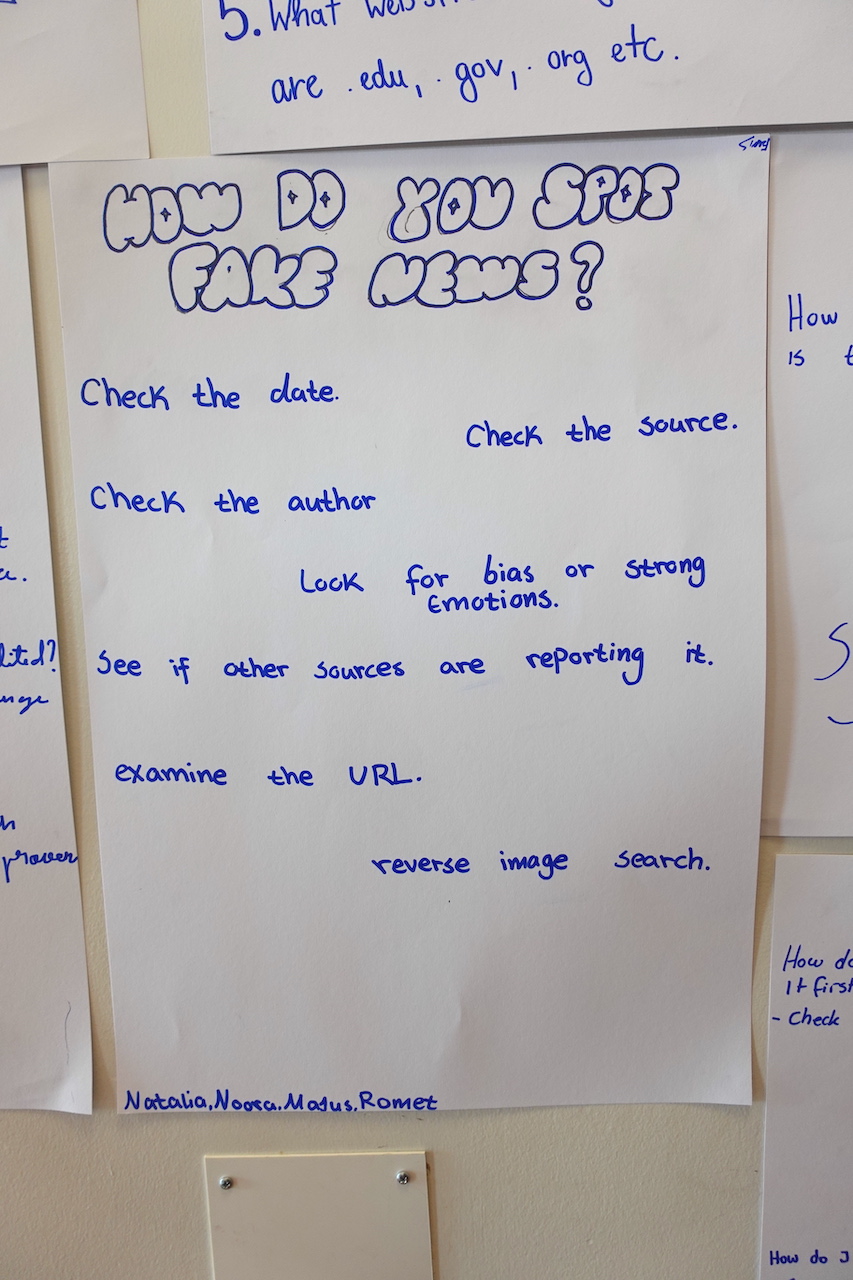 5. What
are .edu, .gov, .org etc.
HOW DO YOU SPOT
FAKE NEWS?
Check the date.
Check the source.
Check the author
Look for bias or strong
Emotions.
See if other sources are reporting it.
examine the URL.
reverse image search.
Natalia, Noora. Majus. Romet
How
is
proven
How do
It first
- Check
How do I